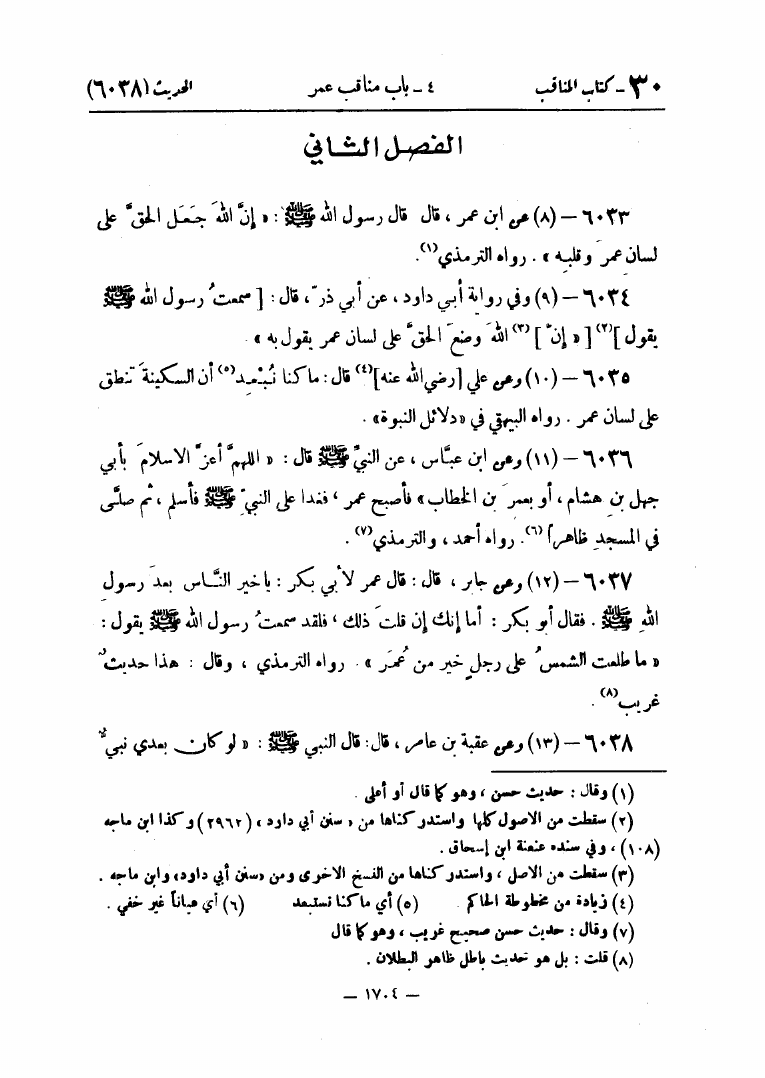 ٣٠ - كتاب المناقب ٤ - باب مناقب عمر الحديث (٦٠٣٨)
الفصل الثاني
٦٠٣٣ - (٨) عن ابن عمر ، قال قال رسول الله ﷺ : « إنَّ اللهَ جَعَل الحقَّ على
لسان عمرَ وقلبِه » . رواه الترمذي(١).
٦٠٣٤ - (٩) وفي رواية أبي داود ، عن أبي ذرّ ، قال : [ سمعتُ رسول الله ﷺ
يقول ](٢) [ « إنَّ ](٣) اللهَ وضعَ الحقَّ على لسان عمر يقول به » .
٦٠٣٥ - (١٠) وعن علي [رضي الله عنه](٤) قال : ما كنا نُبْعِد(٥) أن السكينةَ تنطق
على لسان عمر . رواه البيهقي في «دلائل النبوة» .
٦٠٣٦ - (١١) وعن ابن عبَّاس ، عن النبيِّ ﷺ قال : « اللهمَّ أعزَّ الاسلامَ بأبي
جهل بنِ هشام ، أو بعمرَ بن الخطاب » فأصبح عمر ، فغدا على النبيِّ ﷺ فأسلم ، ثم صلَّى
في المسجدِ ظاهراً (٦). رواه أحمد ، والترمذي(٧) .
٦٠٣٧ - (١٢) وعن جابر ، قال : قال عمر لأبي بكر : يا خير النَّاس بعدَ رسولِ
اللهِ ﷺ . فقال أبو بكر : أما إنك إن قلتَ ذلك ، فلقد سمعتُ رسول الله ﷺ يقول :
« ما طلعت الشمسُ على رجلٍ خير من عُمَرَ » . رواه الترمذي ، وقال : هذا حديثٌ
غريب(٨) .
٦٠٣٨ - (١٣) وعن عقبة بن عامر ، قال : قال النبي ﷺ : « لو كان بعدي نبيٌّ
(١) وقال : حديث حسن ، وهو كما قال أو أعلى .
(٢) سقطت من الاصول كلها واستدركناها من « سنن أبي داود » (٢٩٦٢) وكذا ابن ماجه
(١٠٨) ، وفي سنده عنعنة ابن إسحاق .
(٣) سقطت من الاصل ، واستدركناها من النسخ الاخرى ومن «سنن أبي داود» وابن ماجه .
(٤) زيادة من مخطوطة الحاكم . (٥) أي ما كنا نستبعد (٦) أي عياناً غير خفي .
(٧) وقال : حديث حسن صحيح غريب ، وهو كما قال
(٨) قلت : بل هو حديث باطل ظاهر البطلان .
– ١٧٠٤ –